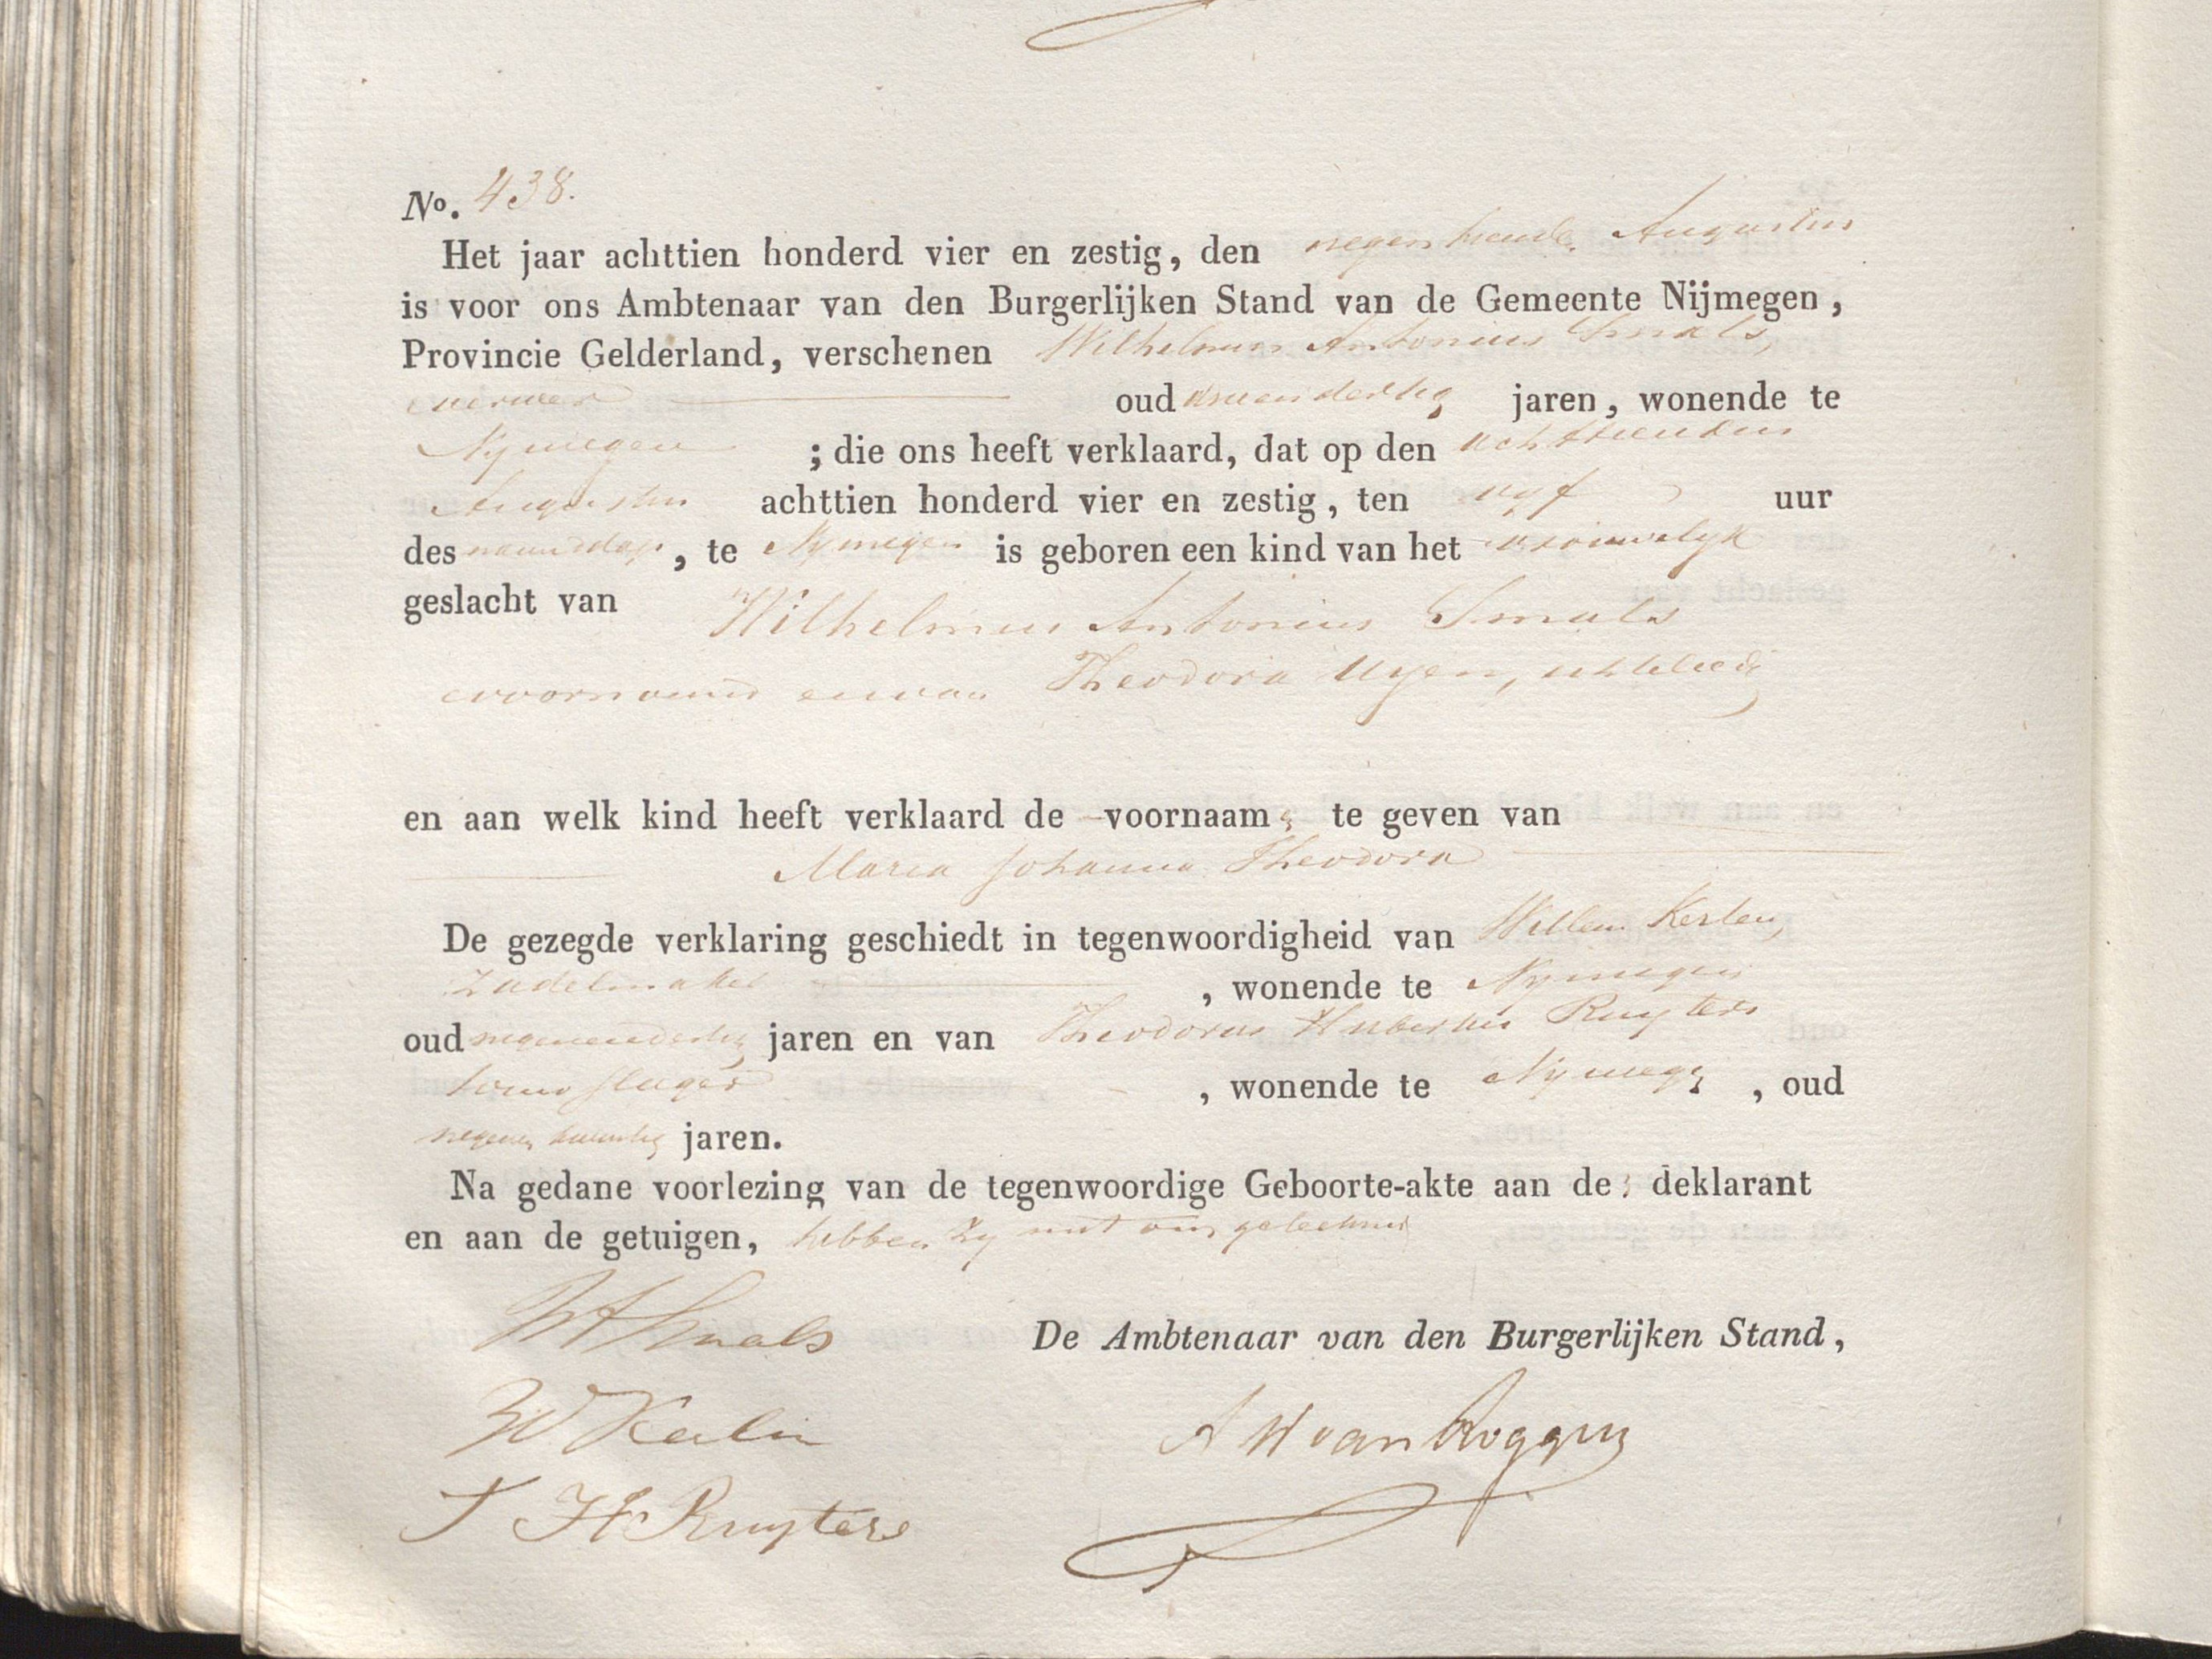 No. 438.
Het jaar achttien honderd vier en zestig, den negentiende Augustus
is voor ons Ambtenaar van den Burgerlijken Stand van de Gemeente Nijmegen,
Provincie Gelderland, verschenen Wilhelmus Antonius Smals,
verwer oud drieendertig jaren, wonende te
Nymegen ; die ons heeft verklaard, dat op den achttienden
Augustus achttien honderd vier en zestig, ten vyf uur
des namiddags, te Nymegen is geboren een kind van het vrouwelyk
geslacht van Wilhelmus Antonius Smals
voornoemd en van Theodora Uyen, echtelieden
en aan welk kind heeft verklaard de voornaam te geven van
Maria Johanna Theodora
De gezegde verklaring geschiedt in tegenwoordigheid van Willem Kersten,
Zadelmaker, wonende te Nymegen
oud negenendertig jaren en van Theodorus Hubertus Ruyters
touwslager, wonende te Nymegen, oud
negenentwintig jaren.
Na gedane voorlezing van de tegenwoordige Geboorte-akte aan de deklarant
en aan de getuigen, hebben zy met ons geteekend
WA Smals
De Ambtenaar van den Burgerlijken Stand,
W
T H Ruyters